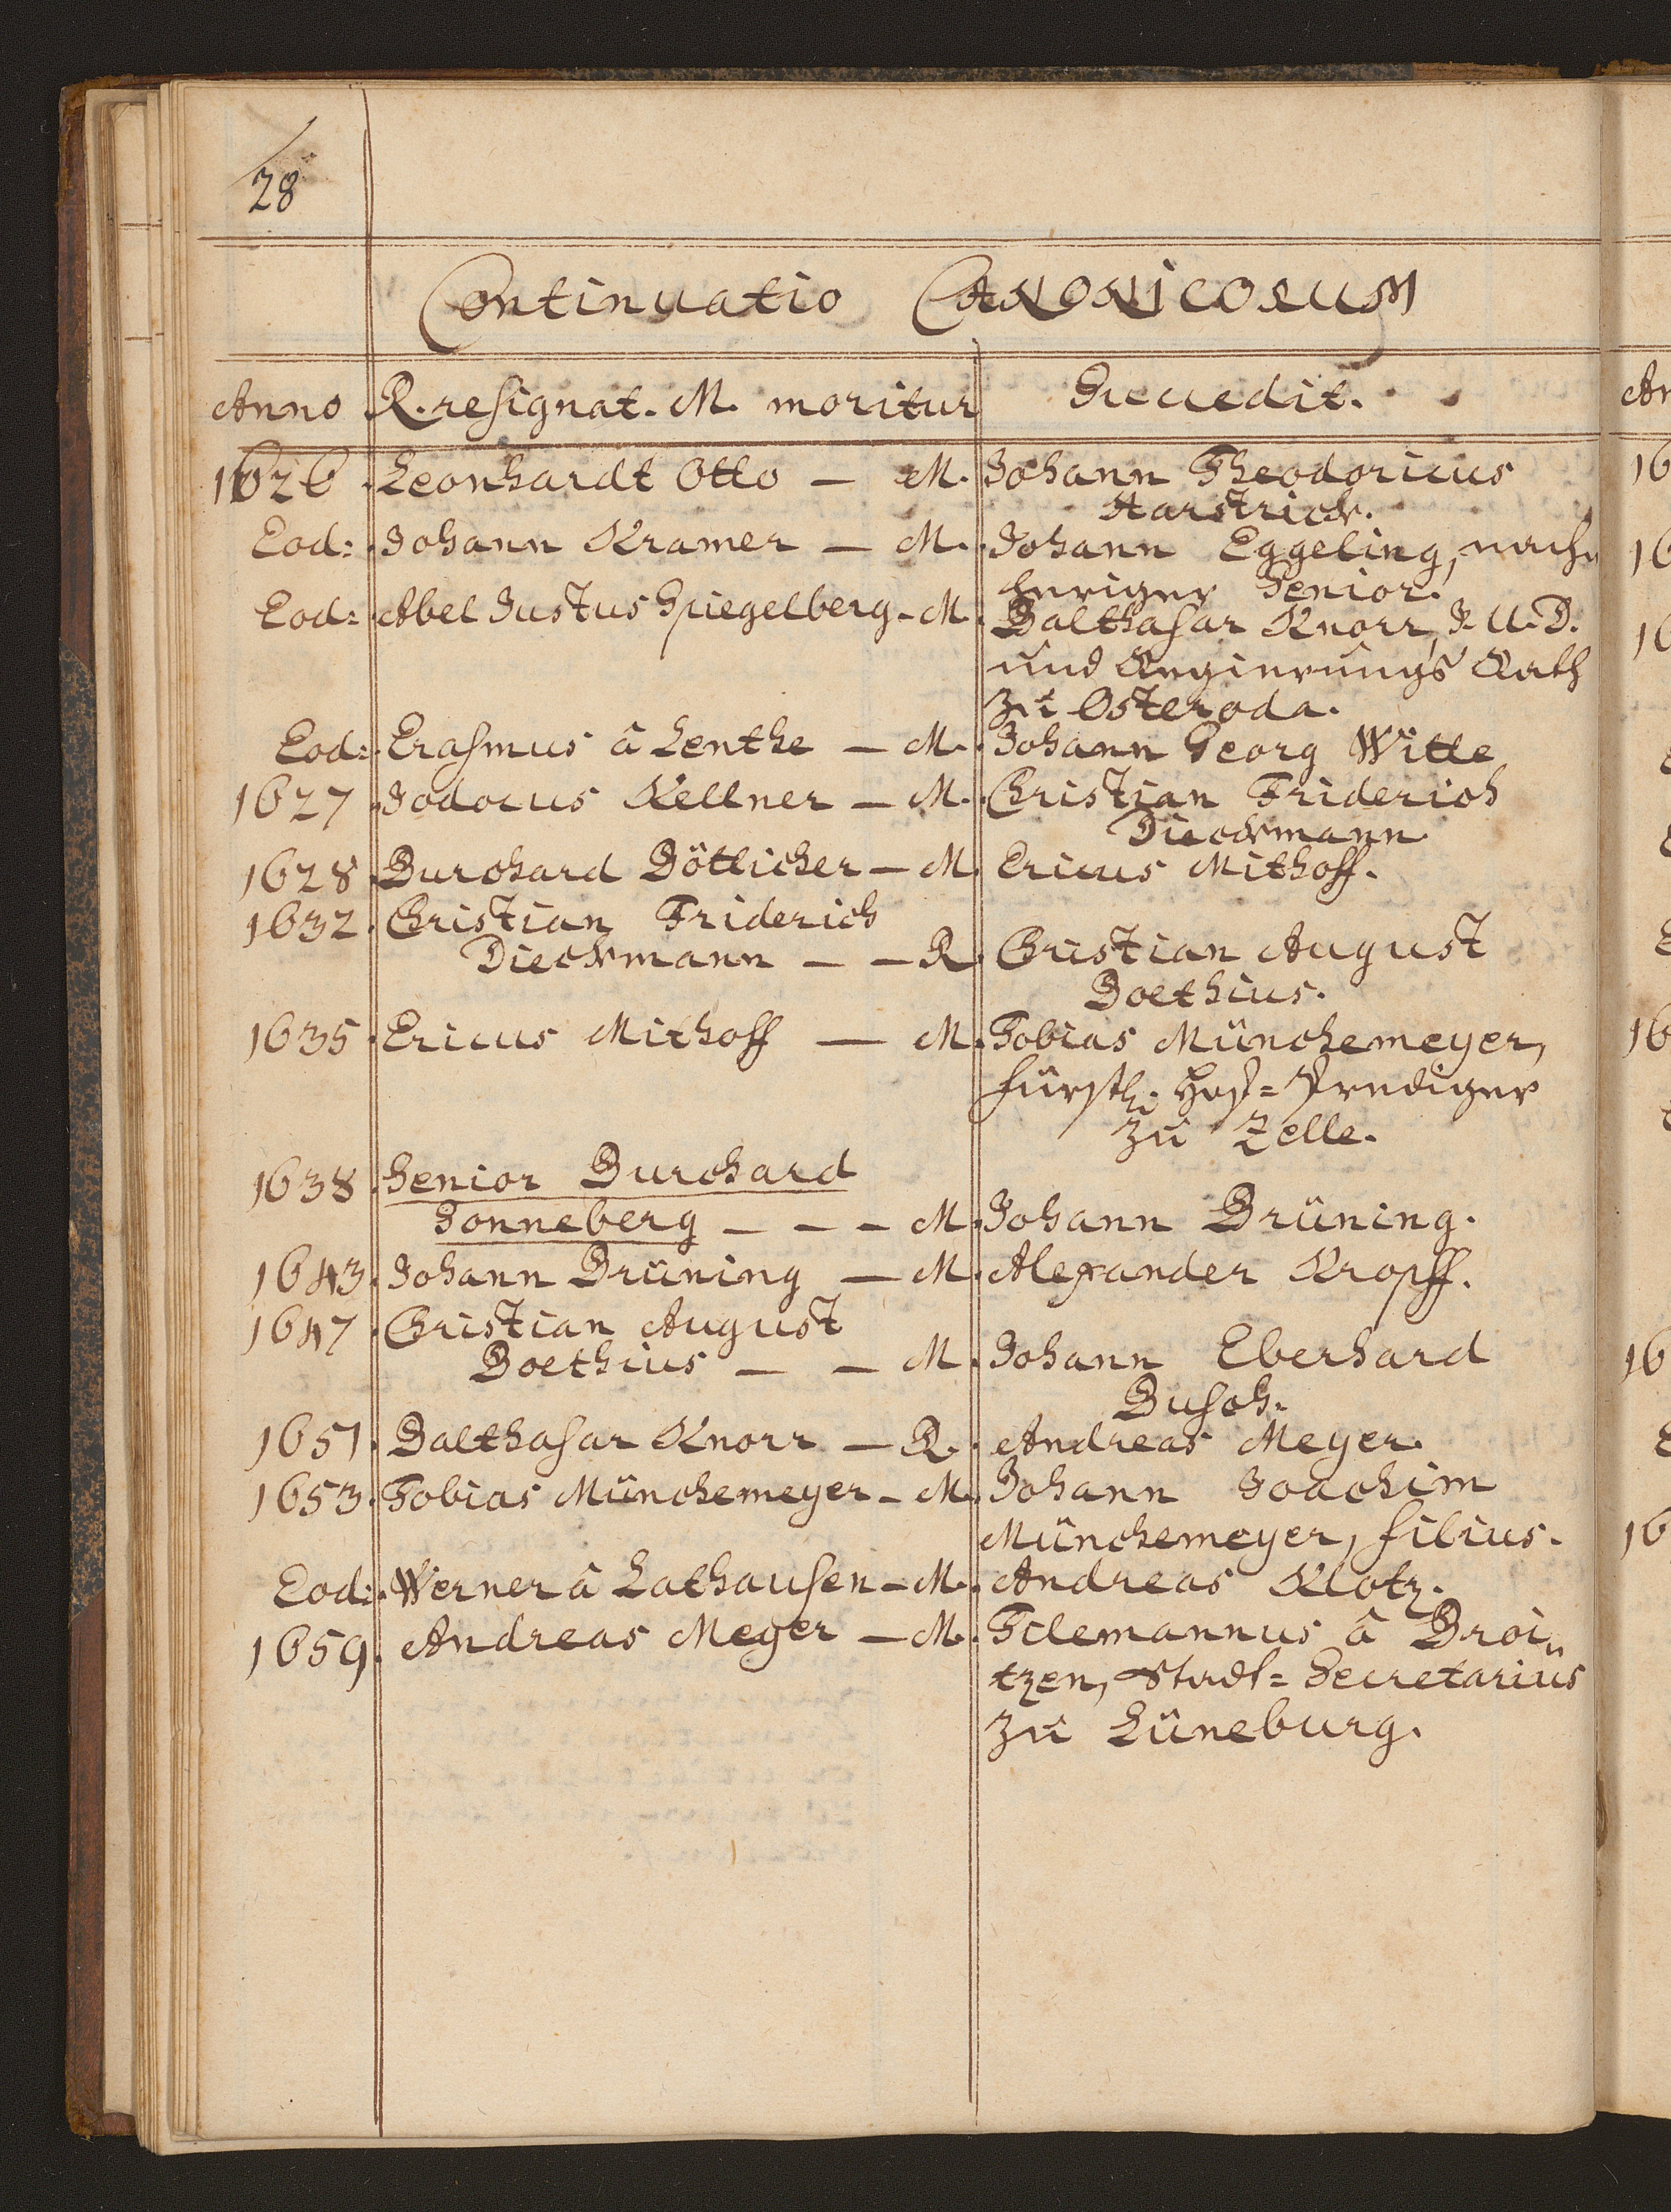 28
Continuatio Canonicorum
Anno R. resignat. M. moritur Succedit.
1626. Leonhardt Otto — M. Johann Theodoricus
Harstrick.
Eod: Johann Kramer — M. Johann Eggeling, nach-
heriger Senior.
Eod: Abel Justus Spiegelberg - M. Balthasar Knorr, J. U. D.
und Regierungs Rath
zu Osteroda.
Eod: Erasmus â Lenthe — M. Johann Georg Witte
1627. Jodocus Kellner — M. Christian Friderich
Dieckmann
1628. Burchard Böttlicher — M. Ericus Mithoff.
1632. Christian Friderich
Dieckmann — — R. Christian August
Boethius.
1635. Ericus Mithoff — M. Tobias Münchemeyer,
fürstl. Hof=Prediger
zu Zelle.
1638. Senior Burchard
Sonneberg — — — M. Johann Brüning.
1643. Johann Brüning — M. Alexander Kropff.
1647. Christian August
Boethius — — M. Johann Eberhard
Busch.
1651. Balthasar Knorr — R. Andreas Meyer.
1653. Tobias Münchemeyer - M. Johann Joachim
Münchemeyer, filius.
Eod: Werner â Lathausen - M. Andreas Klotz.
1659. Andreas Meyer — M. Tilemannus â Broi-
tzen, Stadt=Secretarius
zu Lüneburg.